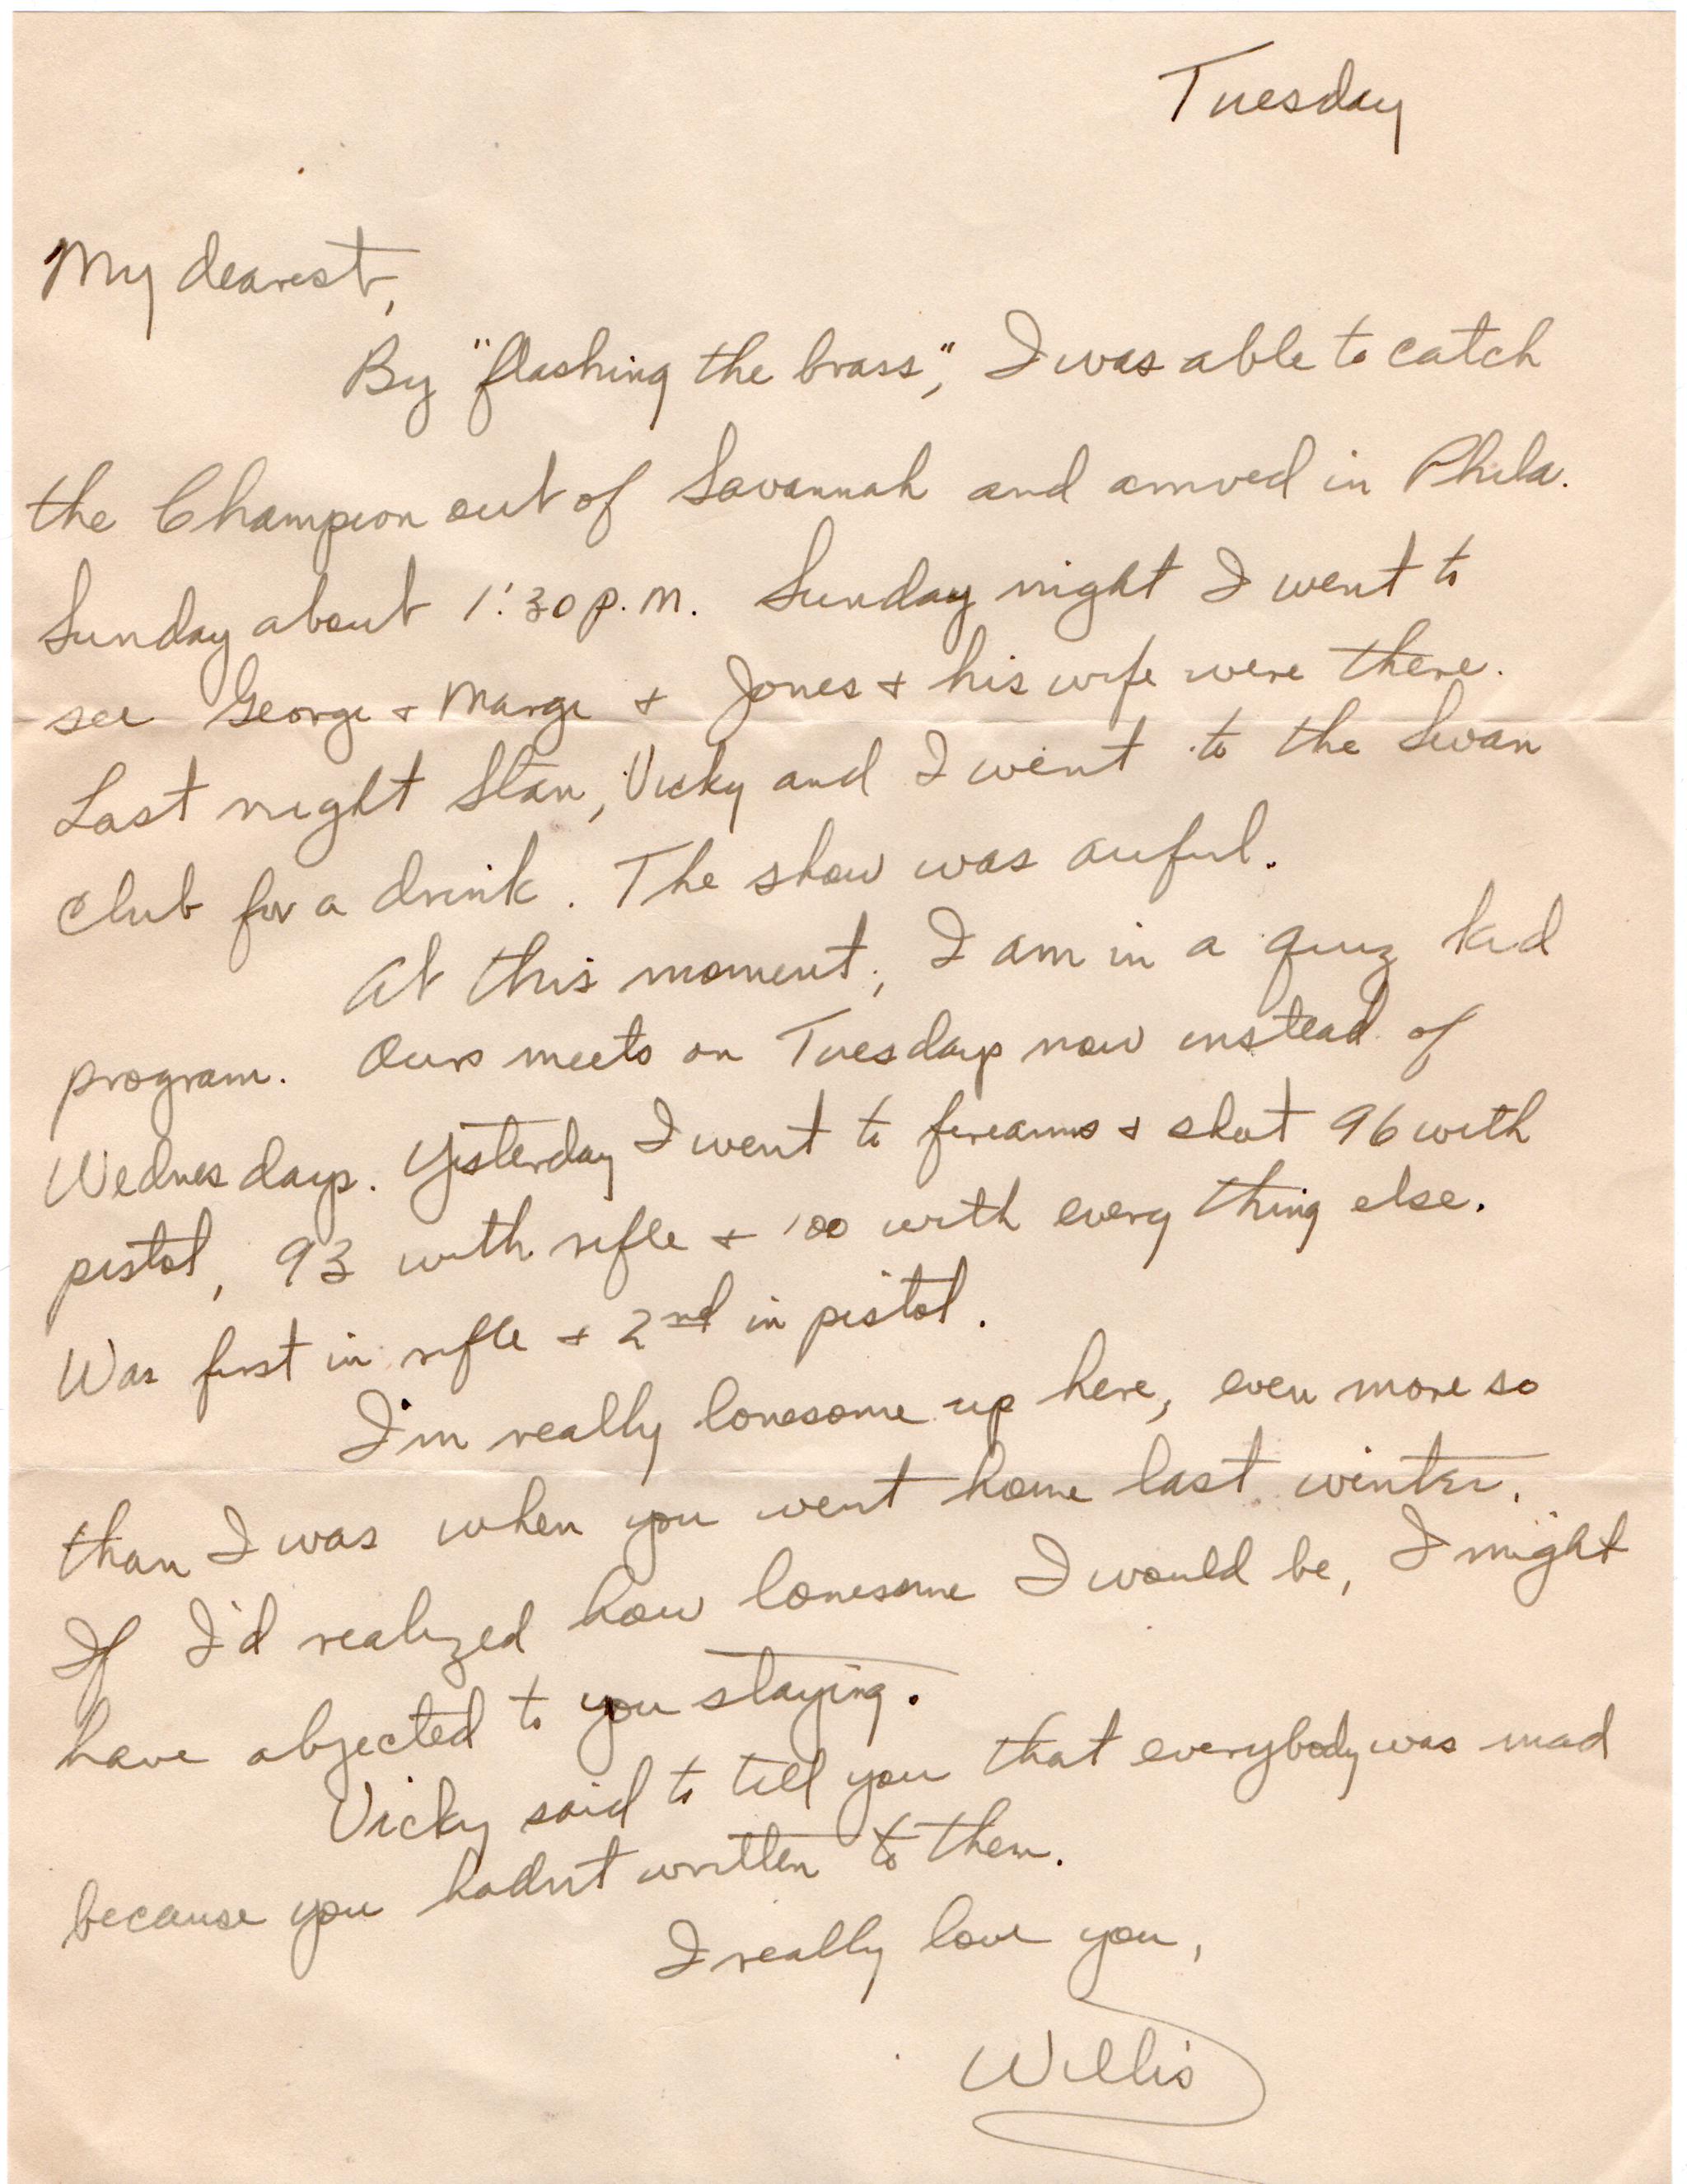 Tuesday
My dearest,
By "flashing the brass", I was able to catch
the Champion out of Savannah and arrived in Phila.
Sunday about 1:30 p.m. Sunday night I went to
see George + Marge + Jones + his wife were there.
Last night Stan, Vicky and I went to the Swan
Club for a drink. The show was awful.
At this moment, I am in a quiz kid
program. Ours meets on Tuesdays now instead of
Wednesdays. Yesterday I went to firearms + shot 96 with
pistol, 93 with rifle + 100 with every thing else.
Was first in rifle + 2nd in pistol.
I'm really lonesome up here, even more so
than I was when you went home last winter.
If I'd realized how lonesome I would be, I might
have objected to you staying.
Vicky said to tell you that everybody was mad
because you hadn't written to them.
I really love you,
Willis